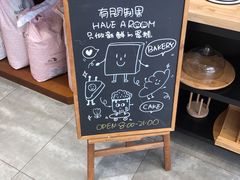 有朋制果
HAVE A ROOM
只做新鮮的蛋糕
BAKERY
CAKE
OPEN 8:00-21:00